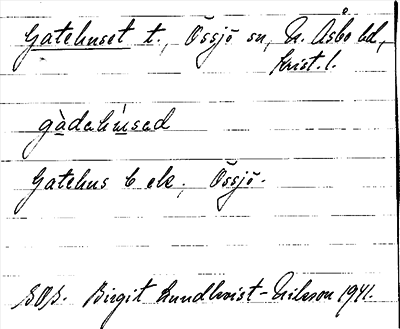 Gatehuset t., Össjö sn, N. Åsbo hd,
Krist. l.
gàdehùsed
Gatehus b ek., Össjö.
Birgit Lundkvist-Nilsson 1941.